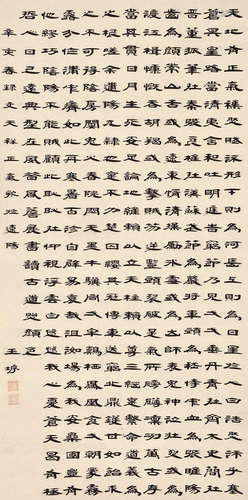 天地有正氣雜然賦流形下則為河嶽上則為日星於人曰浩然沛乎塞
蒼冥皇路當清夷含和吐明庭時窮節乃見一一垂丹青在齊太史簡在
晉董狐筆在秦張良椎在漢蘇武節為嚴將軍頭為嵇侍中血為張睢陽
齒為顏常山舌或為遼東帽清操厲冰雪或為出師表鬼神泣壯烈或為
渡江楫慷慨吞胡羯或為擊賊笏逆豎頭破裂是氣所磅礴凜烈萬古存
當其貫日月生死安足論地維賴以立天柱賴以尊三綱實繫命道義為
之根嗟予遘陽九隸也實不力楚囚纓其冠傳車送窮北鼎鑊甘如飴求
之不可得陰房闃鬼火春院閟天黑牛驥同一皂雞棲鳳凰食一朝蒙霧
露分作溝中瘠如此再寒暑百沴自辟易嗟哉沮洳場為我安樂國豈有
他繆巧陰陽不能賊顧此耿耿在仰視浮雲白悠悠我心憂蒼天曷有極
哲人日已遠典型在夙昔風簷展書讀古道照顏色
辛亥春錄文天祥正氣歌於遼陽 王